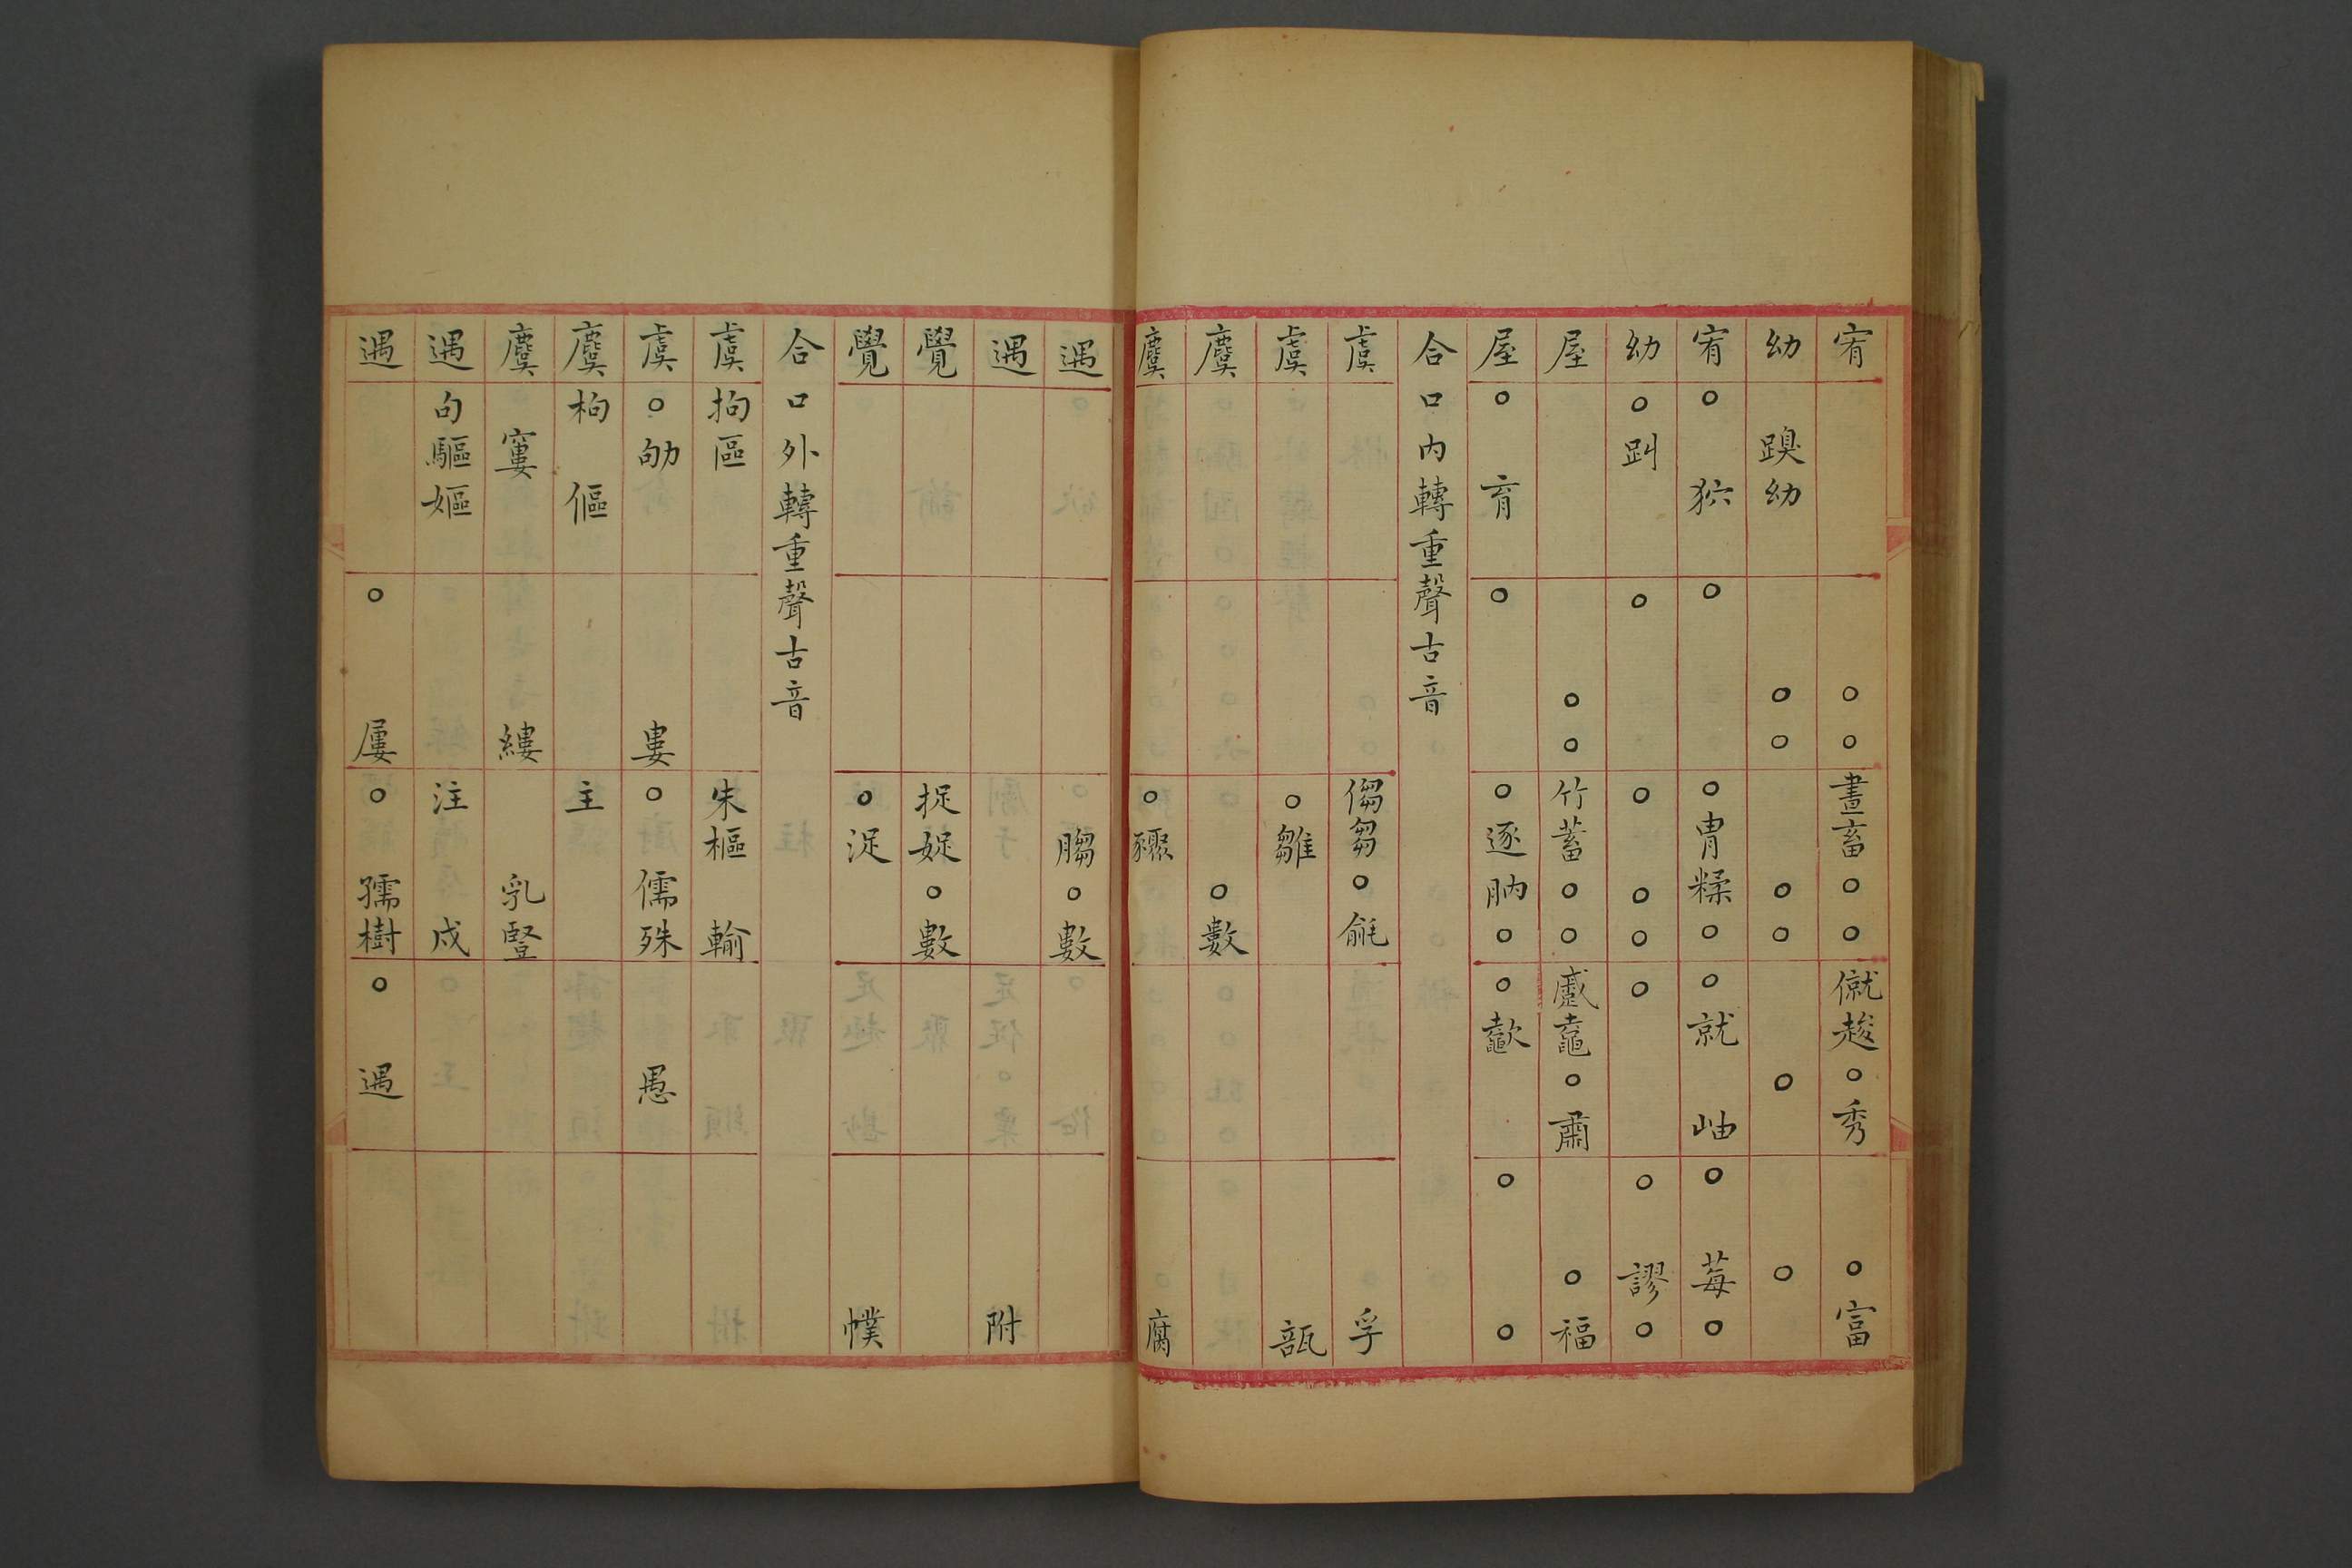 宥○○畫畜○○僦趥○秀○富
幼䠗幼○○○○○○
宥○狖○○冑糅○○就岫○莓○
幼○䟓○○○○○○謬○
屋○○竹蓄○○蹙鼀○肅○福
屋○育○○逐肭○○歜○○
合口內轉重聲古音
虞㑳芻○㲣孚
虞○雛瓿
麌○數
麌○驟腐
遇䐢○數
遇附
覺捉娖○數
覺○浞幞
合口外轉重聲古音
虞拘區朱樞輸
虞○劬婁○廚儒殊愚
麌枸傴主
麌窶縷乳豎
遇句驅嫗注戍
遇○屢○孺樹○遇